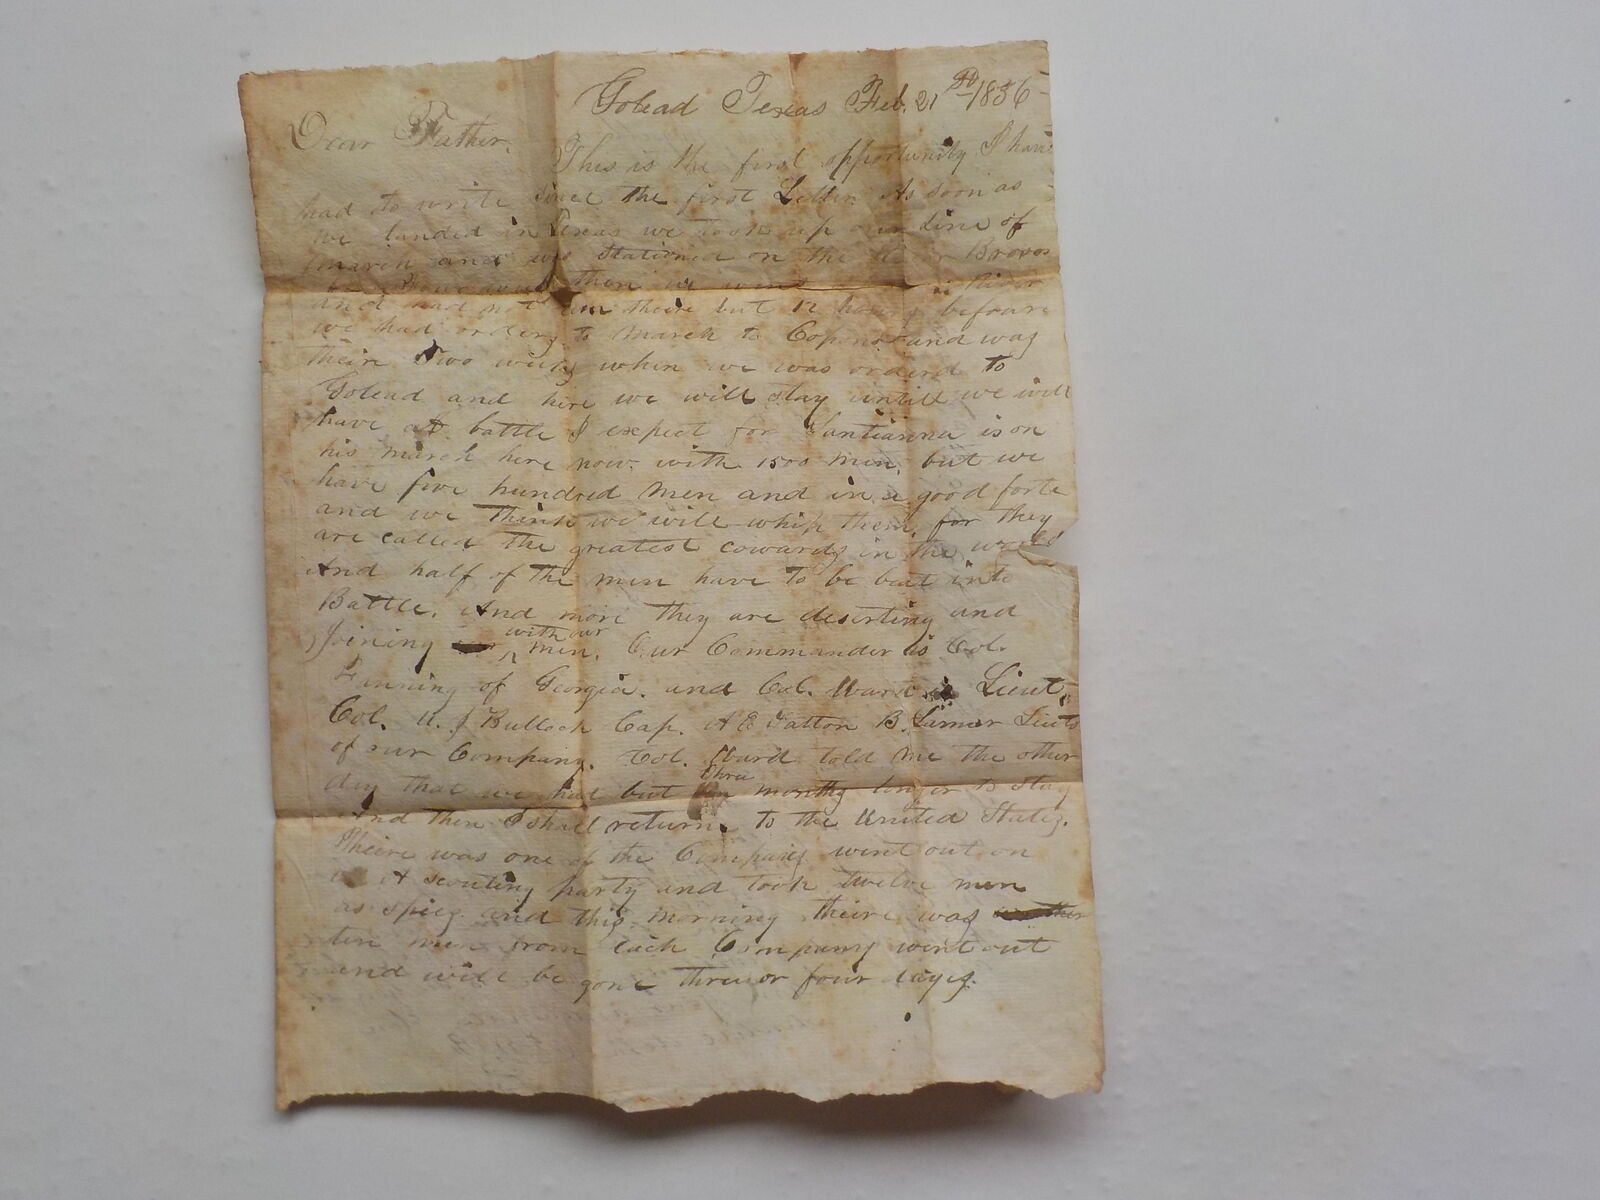 Golead Texas Feb. 21st 1836
Dear Father.
This is the first opportunity I have
had to write since the first Letter. As soon as
we landed in Texas we took up our Line of
march and was stationed on the River Brovos
then we went River
and had not bin theire but 12 hours before
we had orders to march to Copono and was
their two weeks when we was orderd to
Golead and here we will stay untill we will
have a battle I expect for Santianna is on
his march here now. with 1500 men. but we
have five hundred men and in a good forte
and we think we will whip them. for they
are called the greatest cowards in the world
And half of the men have to be beat into
Battle. And more they are deserting and
Joining with our men. Our Commander is Col.
Fanning of Georgia. and Col. Ward is Lieut.
Col. U. J Bullock Cap. A E Patton B. Lamar Lieuts
of our Company. Col. Ward told me the other
day that we had but three months longer to stay
And then I shall return. to the United States.
Theire was one of the Company went out on
A scouting party and took twelve men
as spies. and this morning theire was
ten men from each Company went out
and will be gone three or four days.